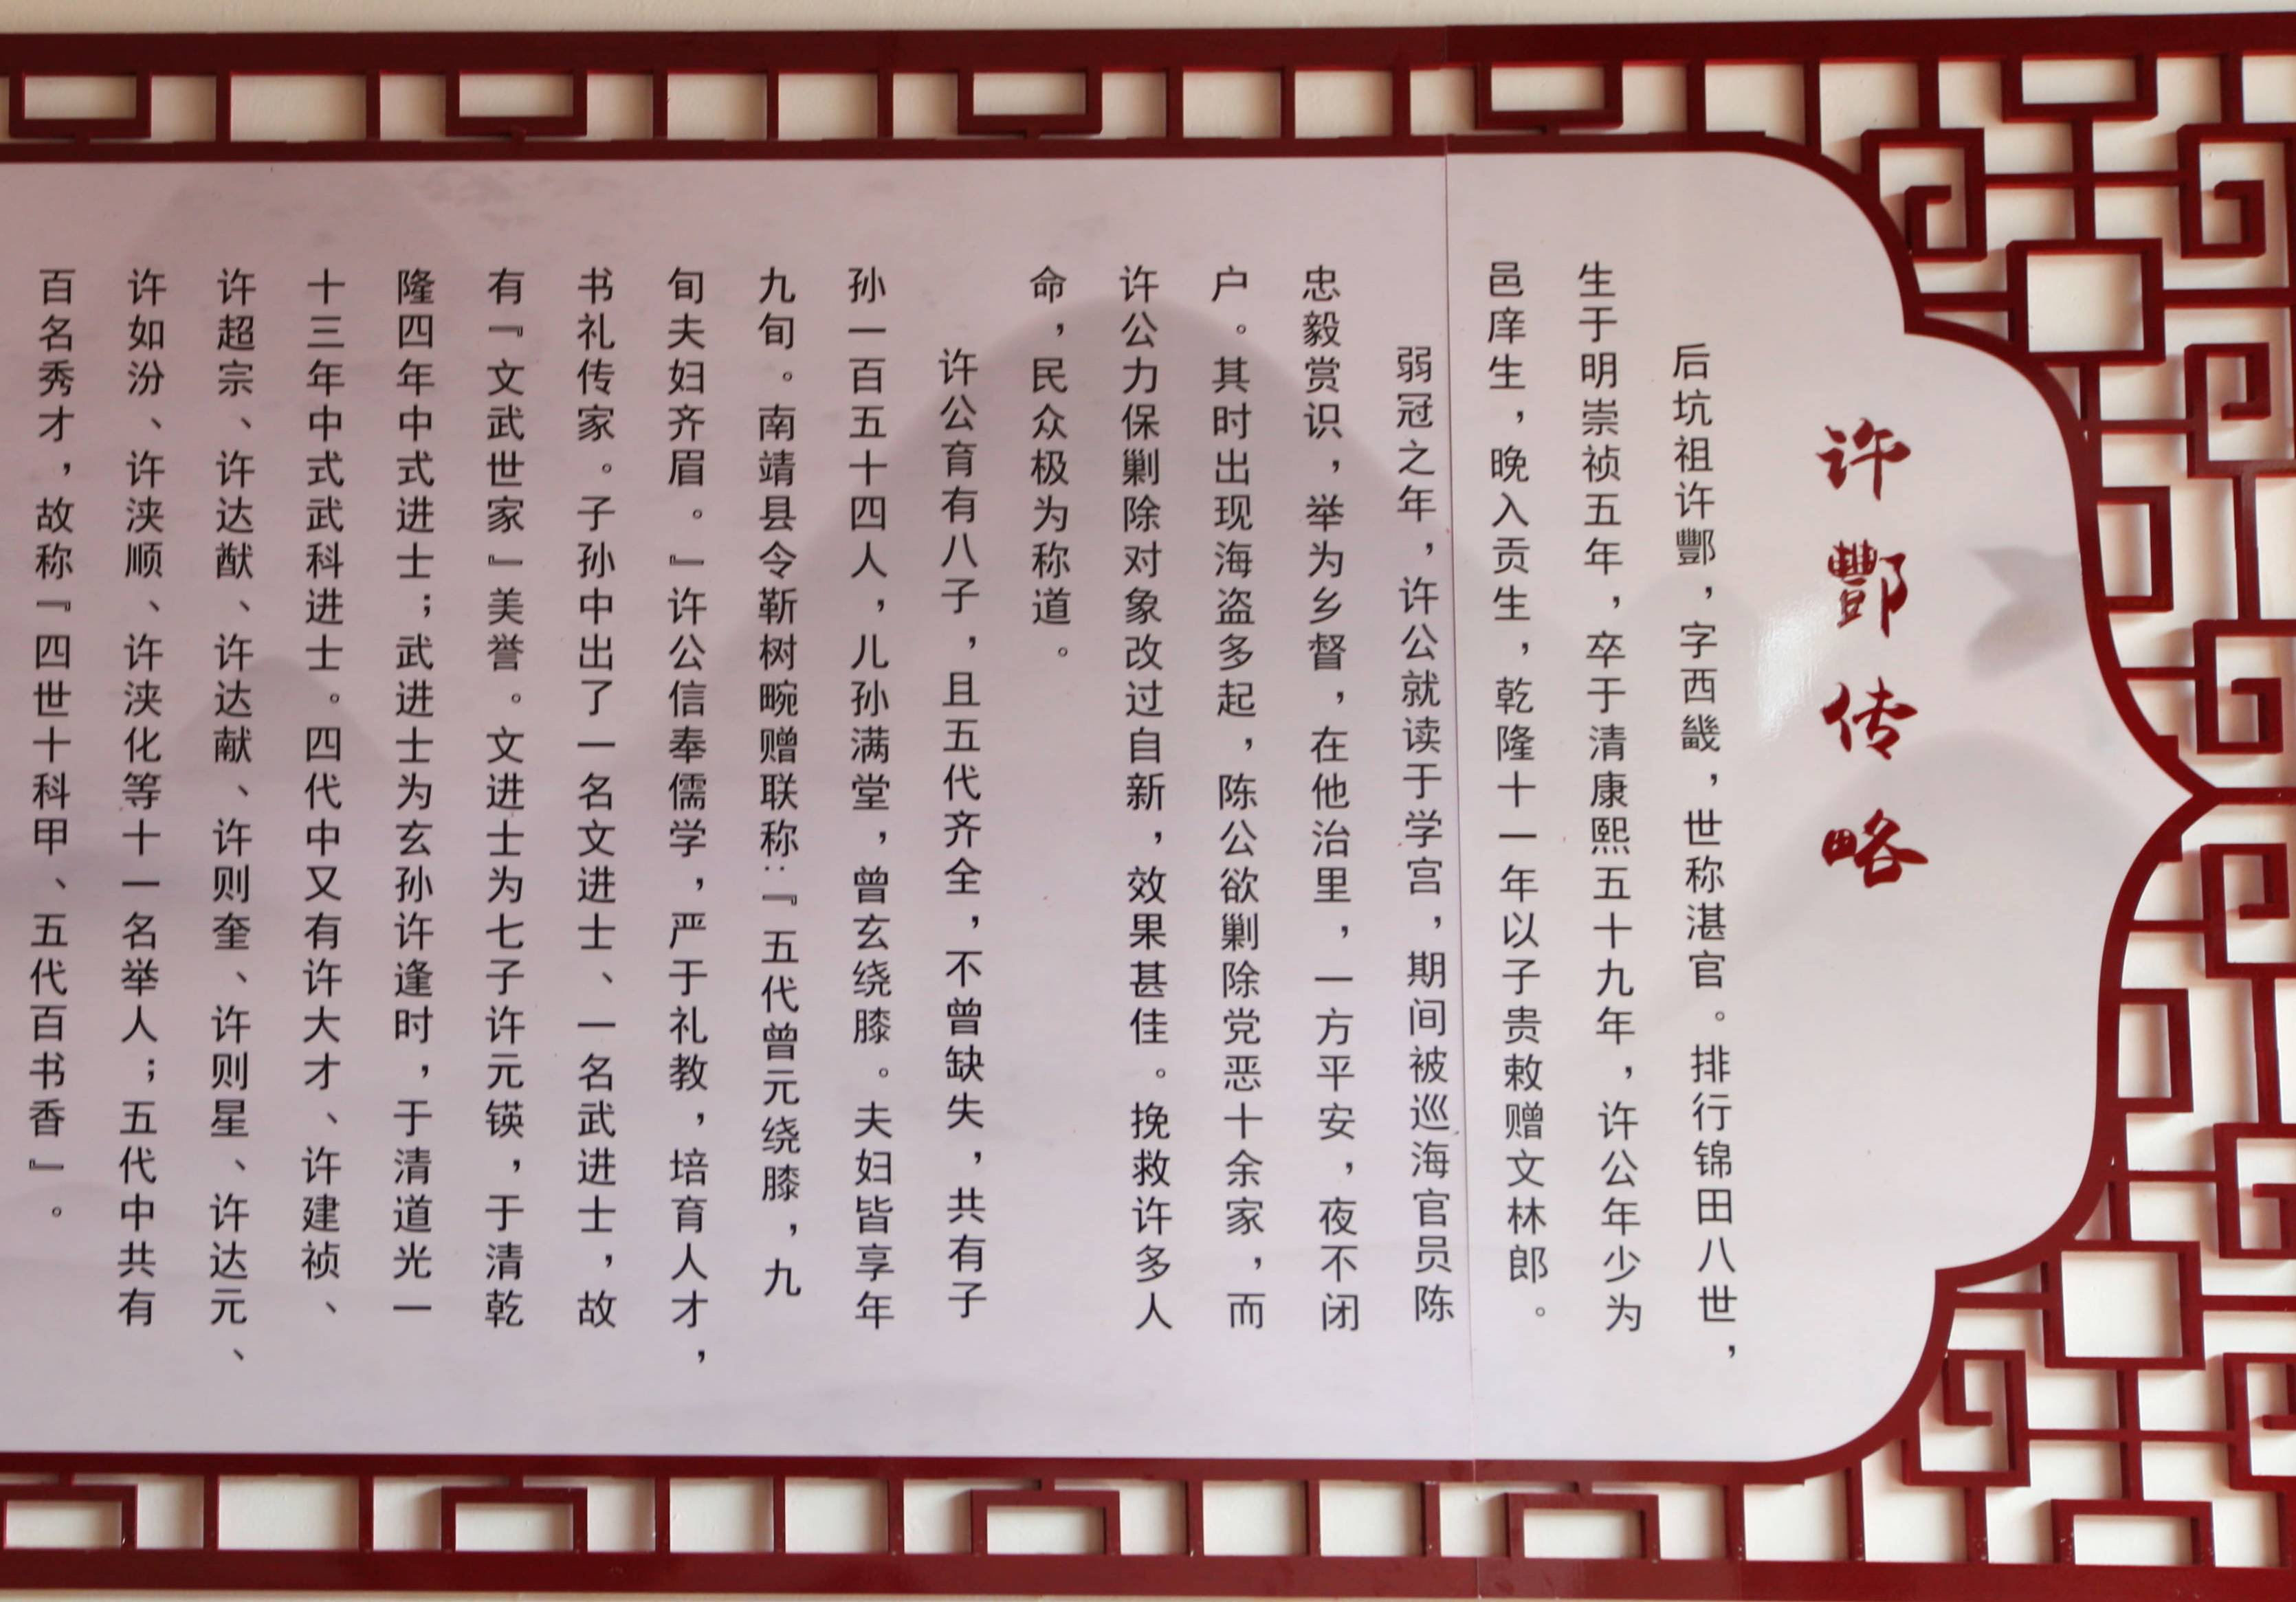 许酆传略
后坑祖许酆，字西畿，世称湛官。排行锦田八世，
生于明崇祯五年，卒于清康熙五十九年，许公年少为
邑庠生，晚入贡生，乾隆十一年以子贵敕赠文林郎。
弱冠之年，许公就读于学宫，期间被巡海官员陈
忠毅赏识，举为乡督，在他治里，一方平安，夜不闭
户。其时出现海盗多起，陈公欲剿除党恶十余家，而
许公力保剿除对象改过自新，效果甚佳。挽救许多人
命，民众极为称道。
许公育有八子，且五代齐全，不曾缺失，共有子
孙一百五十四人，儿孙满堂，曾玄绕膝。夫妇皆享年
九旬。南靖县令靳树畹赠联称：『五代曾元绕膝，九
旬夫妇齐眉。』许公信奉儒学，严于礼教，培育人才，
书礼传家。子孙中出了一名文进士、一名武进士，故
有『文武世家』美誉。文进士为七子许元锳，于清乾
隆四年中式进士；武进士为玄孙许逢时，于清道光一
十三年中式武科进士。四代中又有许大才、许建祯、
许超宗、许达猷、许达献、许则奎、许则星、许达元、
许如汾、许浃顺、许浃化等十一名举人；五代中共有
百名秀才，故称『四世十科甲、五代百书香』。